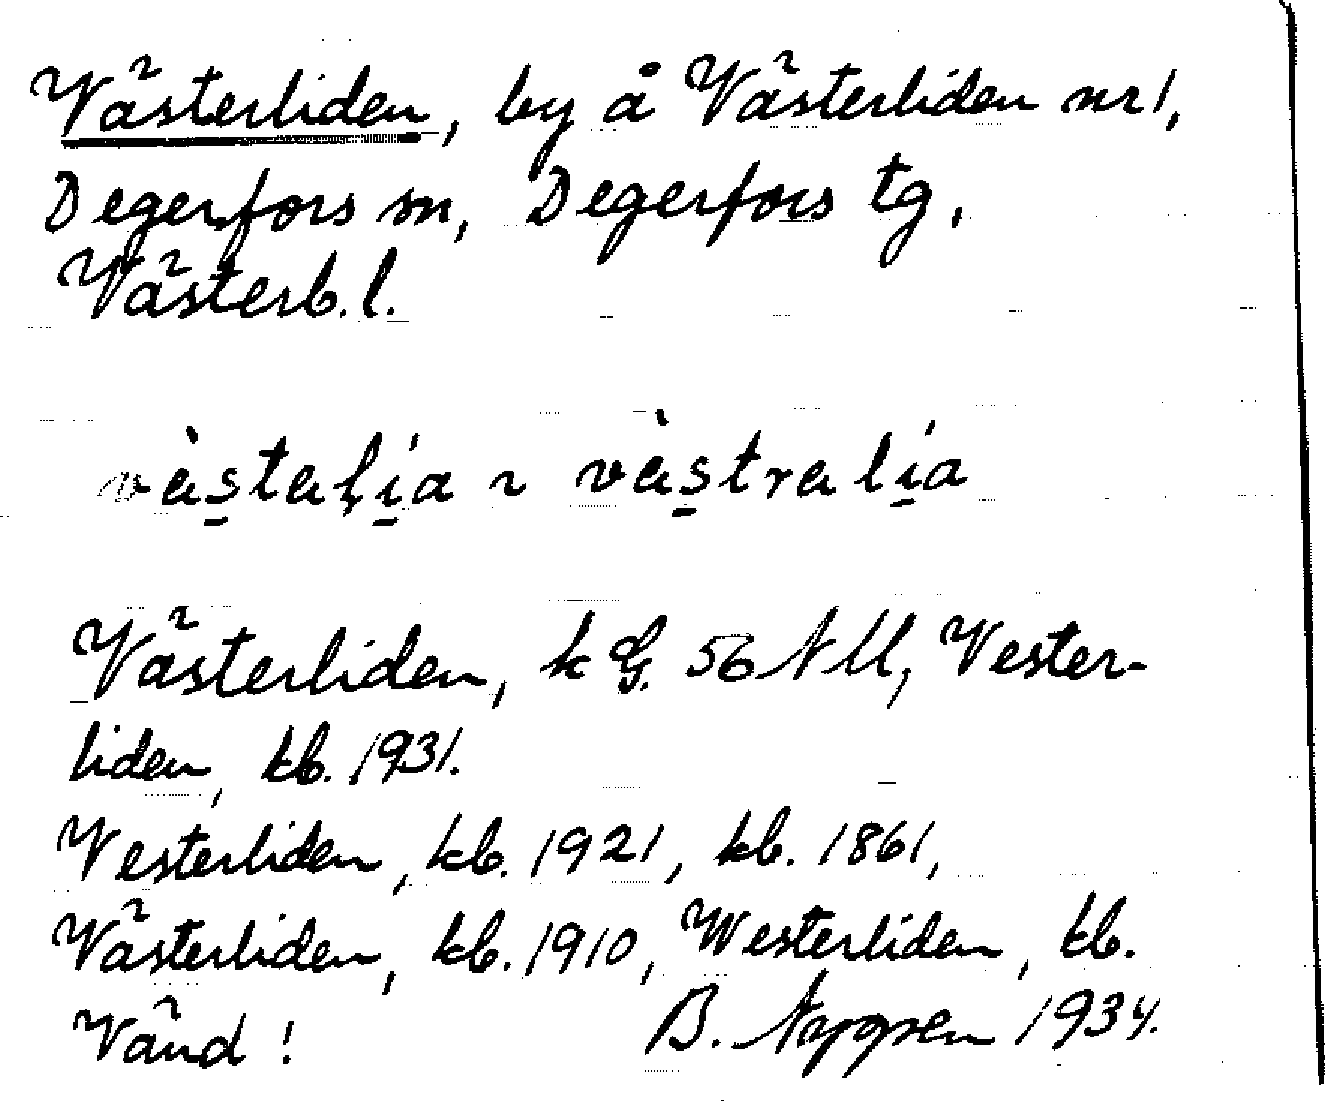 Västerliden, by å Västerliden nr 1,
Degerfors sn, Degerfors tg,
Västerb. l.
västalia ~ västralia
Västerliden, k G. 56 NU, Vester-
liden, kb. 1931.
Vesterliden, kb. 1921, kb. 1861,
Västerliden, kb. 1910, Westerliden, kb.
Vänd! B. 1934.